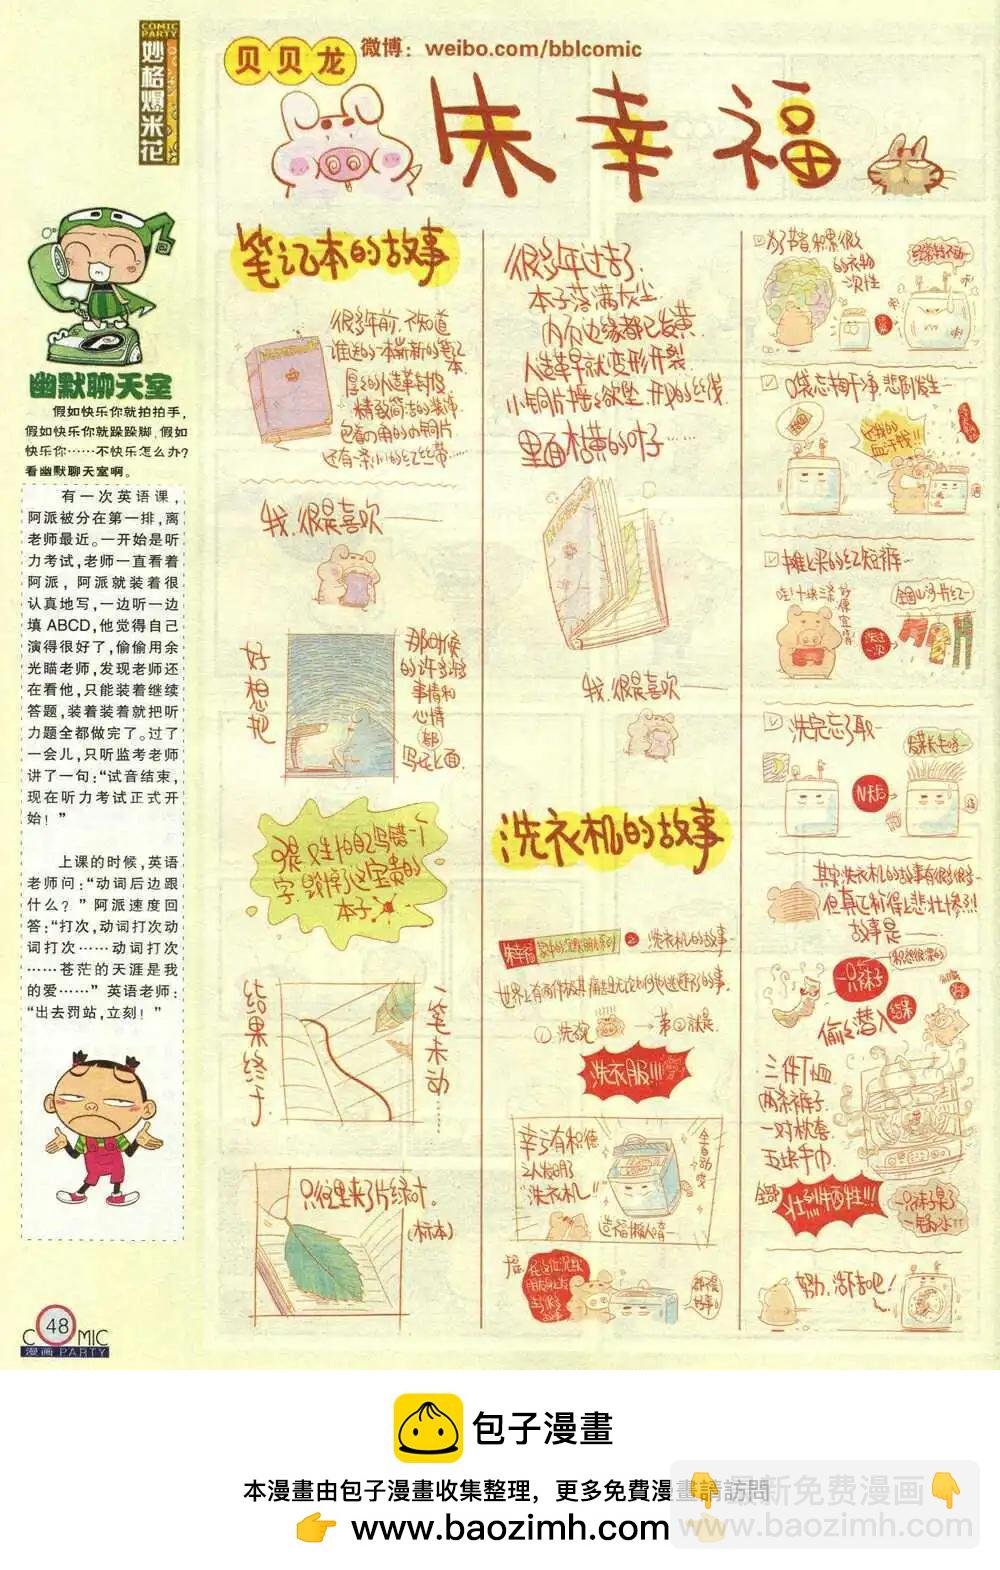 COMIC
PARTY
妙格爆米花
贝贝龙
微博：weibo.com/bblcomic
朱幸福
幽默聊天室
假如快乐你就拍拍手，
假如快乐你就跺跺脚，假如
快乐你……不快乐怎么办？
看幽默聊天室啊。
有一次英语课，
阿派被分在第一排，离
老师最近。一开始是听
力考试，老师一直看着
阿派，阿派就装着很
认真地写，一边听一边
填ABCD，他觉得自己
演得很好了，偷偷用余
光瞄老师，发现老师还
在看他，只能装着继续
答题，装着装着就把听
力题全都做完了。过了
一会儿，只听监考老师
讲了一句：“试音结束，
现在听力考试正式开
始！”
上课的时候，英语
老师问：“动词后边跟
什么？”阿派速度回
答：“打次，动词打次动
词打次……动词打次
……苍茫的天涯是我
的爱……”英语老师：
“出去罚站，立刻！”
48
COMIC
漫画 PARTY
笔记本的故事
很多年前，不知道
谁送的一本崭新的笔记
本
厚的人造革封皮
精致简洁的装饰
包着四角的小铜片
还有一条小的红丝带……
我，很是喜欢——
好想把
那时候
的许多多
事情和
心情
都
写在上面
可是，生怕自己写错一个
字，毁掉了这宝贵的
本子
结果终于
一笔未动……
只往里夹了片绿叶。
(标本)
很多年过去了，
本子落满灰尘，
内页边缘都已发黄，
人造革早就变形开裂
小铜片摇摇欲坠，开线的丝带
里面枯黄的叶子……
我，很是喜欢——
洗衣机的故事
朱幸福
洗衣机的故事—
①洗碗
→第②就是
洗衣服!!!
幸亏有积德
之人发明了
“洗衣机”!!
全自动哎
造福懒人唷—
为了节省，积累很久
的衣物
一次性
口袋忘掏干净，悲剧发生—
还我的
血汗钱!!
摊上买的红短裤—
哇！十块三条
好便宜唷!
洗过
一次
全国山河一片红—
洗完忘了取—
N天后
其实洗衣机的故事有很多很多—
但真正称得上悲壮惨烈!!
故事是——
一只袜子
偷偷潜入
结果
三件T恤
两条裤子
一对枕套
五块毛巾
全部
壮烈牺牲!!!
努力，活下去吧！
包子漫畫
本漫畫由包子漫畫收集整理，更多免費漫畫請訪問
www.baozimh.com
最新免费漫画
www.baozimh.com